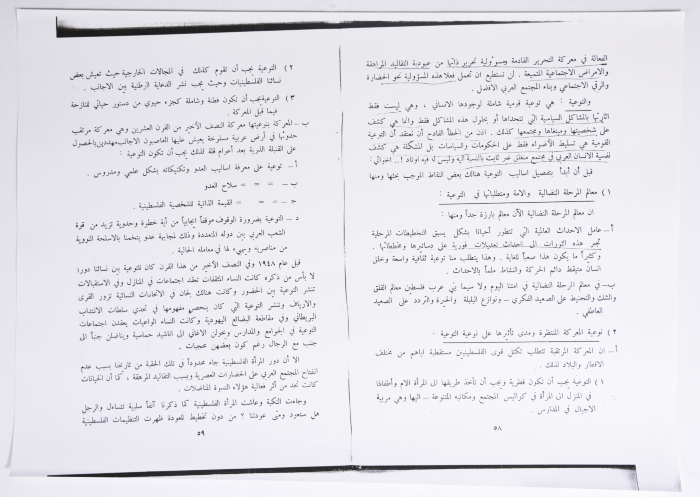 الفعالة في معركة التحرير القادمة ومسؤولية تحرير ذاتها من عبودية التقاليد المرهقة
والامراض الاجتماعية المتميعة . لن نستطيع ان تحمل فعلا هذه المسؤولية نحو الحضارة
والرقي الاجتماعي وبناء المجتمع العربي الافضل .
والتوعية : هي توعية قومية شاملة لوجودها الانساني ، وهي ليست فقط
اثارتها بالمشاكل السياسية التي تتحداها أو بحلول هذه المشاكل فقط وانما هي كشف
على شخصيتها ومبتغاها ومجتمعها كذلك . اذن من الخطأ الفادح أن نعتقد أن التوعية
القومية هي تسليط الاضواء فقط على الحكومات والسياسات بل المشكلة هي كشف
نفسية الانسان العربي في مجتمع منغلق غير ثابت بالنسبة اليه وليس له فيه اوتاد !.. اخواتي :
قبل أن أبدأ بتفصيل اساليب التوعية هنالك بعض النقاط الموجب بحثها ومنها
١ ) معالم المرحلة النضالية والامة ومتطلباتها في التوعية :
ان معالم المرحلة النضالية الآن معالم بارزة جداً ومنها :
أ – عامل الاحداث العالمية التي تتطور أحياناً بشكل يسبق التخطيطات المرحلية
تجبر هذه الثورات الى احداث تعديلات فورية على دساتيرها ومخططاتها .
وكثيراً ما يكون هذا صعباً للغاية . وهذا يتطلب منا توعية ثقافية واسعة وخلق
انسان متيقظ دائم الحركة والنشاط ملماً بالاحداث .
ب – في معالم المرحلة النضالية في امتنا اليوم ولا سيما بني عرب فلسطين معالم القلق
والشك والتخبط على الصعيد الفكري – ونوازع البلبلة والحيرة والتردد على الصعيد
العاطفي .
٢ ) نوعية المعركة المنتظرة ومدى تأثيرها على نوعية التوعية :
أ – ان المعركة المرتقبة تتطلب تكتل قوى الفلسطينيين مستقطبة اياهم من مختلف
الاقطار والبلاد لذلك .
١ ) التوعية يجب أن تكون قطرية ويجب أن تأخذ طريقها الى المرأة الام وأطفالها
في المنزل الى المرأة في كواليس المجتمع ومكانه المتنوعة – اليها وهي مربية
الاجيال في المدارس .
٥٨
٢ ) التوعية يجب أن تقوم كذلك في المجالات الخارجية حيث تعيش بعض
نسائنا الفلسطينيات وحيث يجب نشر الدعاية الوطنية بين الاجانب .
٣ ) التوعية يجب أن تكون فطنة وشاملة كجزء حيوي من دستور حياتي للنازحة
فيما قبل المعركة .
ب – المعركة بنوعيتها معركة النصف الأخير من القرن العشرين وهي معركة مرتقب
حدوثها في أرض عربية مسلوخة يعيش عليها الغاصبون الاجانب مهددين بالحصول
على القنبلة الذرية بعد أعوام قلة لذلك يجب أن تكون التوعية :
أ – توعية على معرفة اساليب العدو وتكنيكاته بشكل علمي ومدروس .
ب – = = = سلاح العدو
ج – = = القيمة الذاتية للشخصية الفلسطينية .
د – التوعية بضرورة الوقوف موقفاً ايجابياً من أية خطوة وحدوية تزيد من قوة
الشعب العربي بين دوله المتعددة وذلك لمجابهة عدو يتخمنا بالاسلحة النووية
من مناصريه وسيبكي لها في معامله الحالية .
قبل عام ١٩٤٨ وفي النصف الأخير من هذا القرن كان للتوعية بين نسائنا دورا
لا بأس من ذكره كانت النساء المثقفات تعقد اجتماعات في المنازل وفي الاستقبالات
تنشر التوعية بين الحضور وكانت هنالك لجان في الاتحادات النسائية تزور القرى
والارياف وتنشر التوعية التي كان ينحصر مفهومها في تحدي سلطات الانتداب
البريطاني وفي مقاطعة البضائع اليهودية وكانت النساء الواعيات يعقدن اجتماعات
التوعية في الجوامع والمدارس ويحولن الاغاني الى اناشيد حماسية ويناضلن جنباً الى
جنب مع الرجال رغم كون بعضهن محجبات .
الا أن دور المرأة الفلسطينية جاء محدوداً في تلك الحقبة من تاريخنا بسبب عدم
انفتاح المجتمع العربي على الحضارات العصرية وبسبب التقاليد المرهقة ، كما أن الخيانات
كانت تحد من أثر فعالية هؤلاء النسوة المناضلات .
وجاءت النكبة وعاشت المرأة الفلسطينية كما ذكرنا آنفاً سلبية تتساءل والرجل
هل سنعود ومتى عودتنا ؟ من دون تخطيط للعودة ظهرت التنظيمات الفلسطينية
٥٩